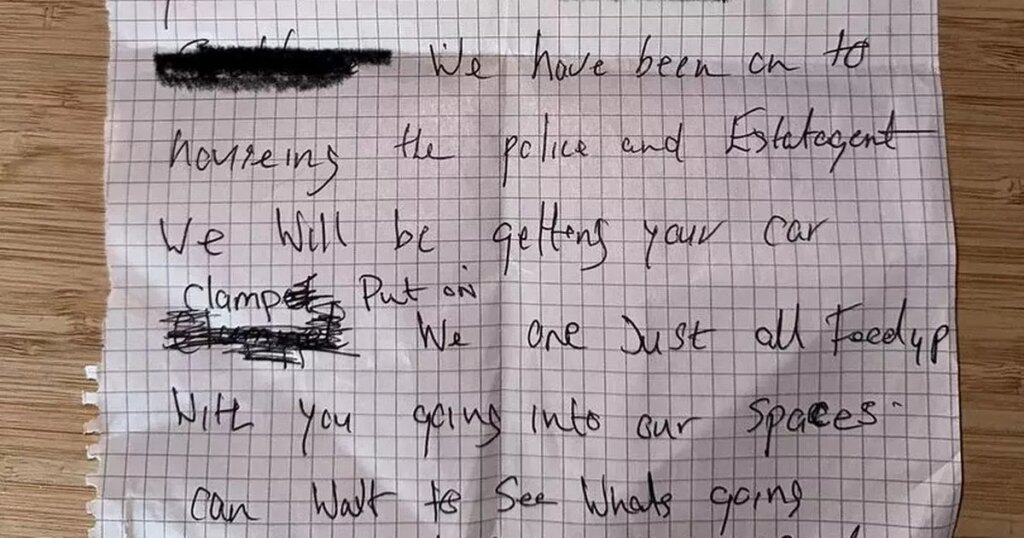 We have been on to
houseing the police and Estatagent
We Will be getting your car
clamp Put on
We are Just all Foedyp
With you going into our Spaces
can Wait to See Whats going